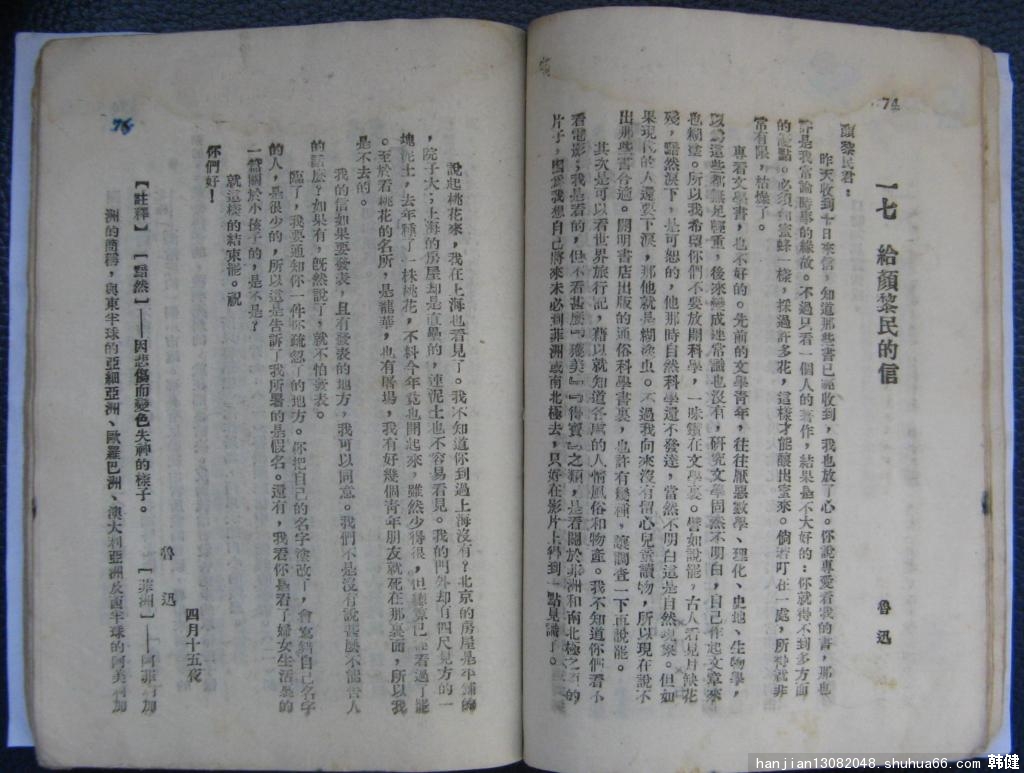 74
一七　給顏黎民的信
魯迅
顏黎民君：
昨天收到十日來信，知道那些書已經收到，我也放了心。你說專愛看我的書，那也
許是我常論時事的緣故。不過只看一個人的著作，結果是不大好的：你就得不到多方面
的優點。必須如蜜蜂一樣，採過許多花，這樣才能釀出蜜來。倘若叮在一處，所得就非
常有限，枯燥了。
專看文學書，也不好的。先前的文學青年，往往厭惡數學、理化、史地、生物學，
以為這些都無足輕重，後來變成連常識也沒有，研究文學固然不明白，自己作起文章來
也糊塗。所以我希望你們不要放開科學，一味鑽在文學裏。譬如說罷，古人看見月缺花
殘，黯然淚下，是可恕的，他那時自然科學還不發達，當然不明白這是自然現象。但如
果現代的人還要下淚，那他就是糊塗虫。不過我向來沒有留心兒童讀物，所以現在說不
出那些書合適。開明書店出版的通俗科學書裏，也許有幾種，讓調查一下再說罷。
其次是可以看世界旅行記，藉以就知道各處的人情風俗和物產。我不知道你們看不
看電影；我是看的，但不看甚麼『獲美』『得寶』之類，是看關於非洲和南北極之類的
片子，因為我想自己將來未必到非洲或南北極去，只好在影片上得到一點見識了。
說起桃花來，我在上海也看見了。我不知道你到過上海沒有？北京的房屋是平鋪的
，院子大；上海的房屋却是直壘的，連泥土也不容易看見。我的門外却有四尺見方的一
塊泥土，去年種了一株桃花，不料今年竟也開起來，雖然少得很，但總算已經看過了罷
。至於看桃花的名所，是龍華，也有屠場，我有好幾個青年朋友就死在那裏面，所以我
是不去的。
我的信如果要發表，且有發表的地方，我可以同意。我們不是沒有說甚麼不能告人
的話麼？如果有，既然說了，就不怕發表。
臨了，我要通知你一件你疏忽了的地方。你把自己的名字塗改了，會寫錯自己名字
的人，是很少的，所以這是告訴了我所署的是假名。還有，我看你是看了婦女生活裏的
一篇關於小孩子的，是不是？
就這樣的結束罷。祝
你們好！
魯迅
四月十五夜
【註釋】　【黯然】——因悲傷而變色失神的樣子。　【菲洲】——阿菲利加
洲的簡稱，與東半球的亞細亞洲、歐羅巴洲、澳大利亞洲及西半球的阿美利加
76
hanjian13082048.shuhua66.com 韩健